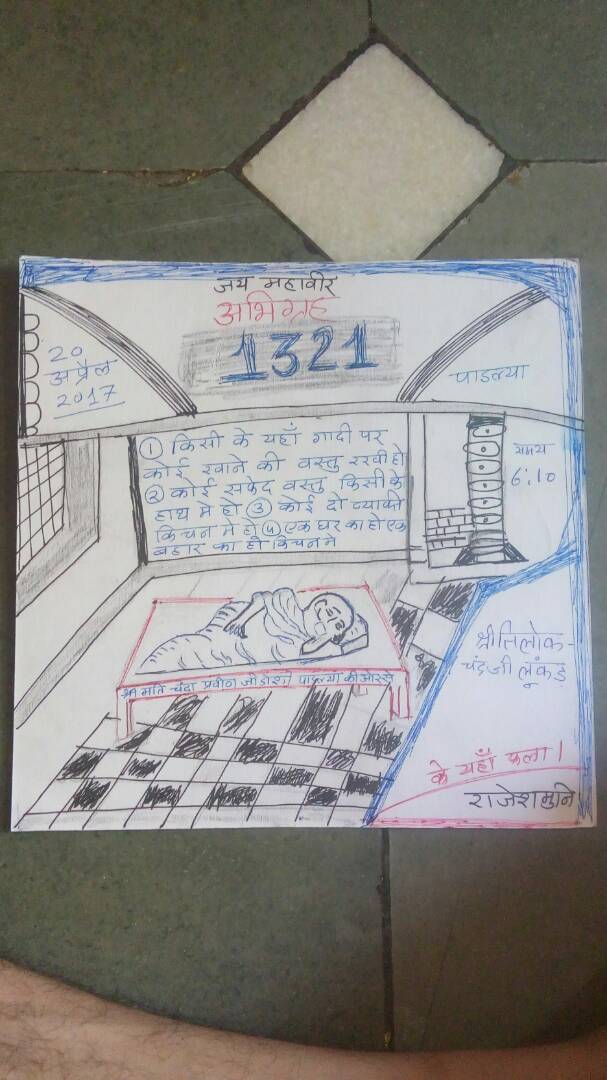 जय महावीर
अभिग्रह
1321
20
अप्रैल
2017
पाडल्या
① किसी के यहाँ गादी पर
कोई खाने की वस्तु रखी हो
② कोई सफेद वस्तु किसी के
हाथ मे हो ③ कोई दो व्यक्ति
किचन मे हो ④ एक घर का हो एक
बहार का हो किचन मे
समय
6:10
श्री मति चंदा प्रवीण जी पाडल्या की ओर से
श्री तिलोक-
चंद जी लूंकड
के यहाँ फला।
राजेश मुनि